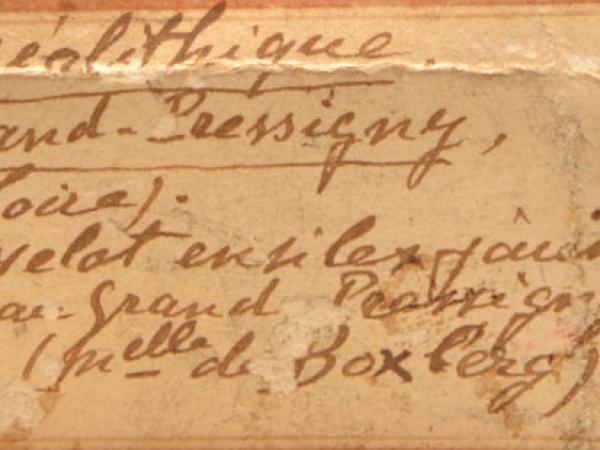 éolithique.
and-Pressigny,
oire).
velot en silex jaun
au Grand Pressign
(Melle de Boxberg)